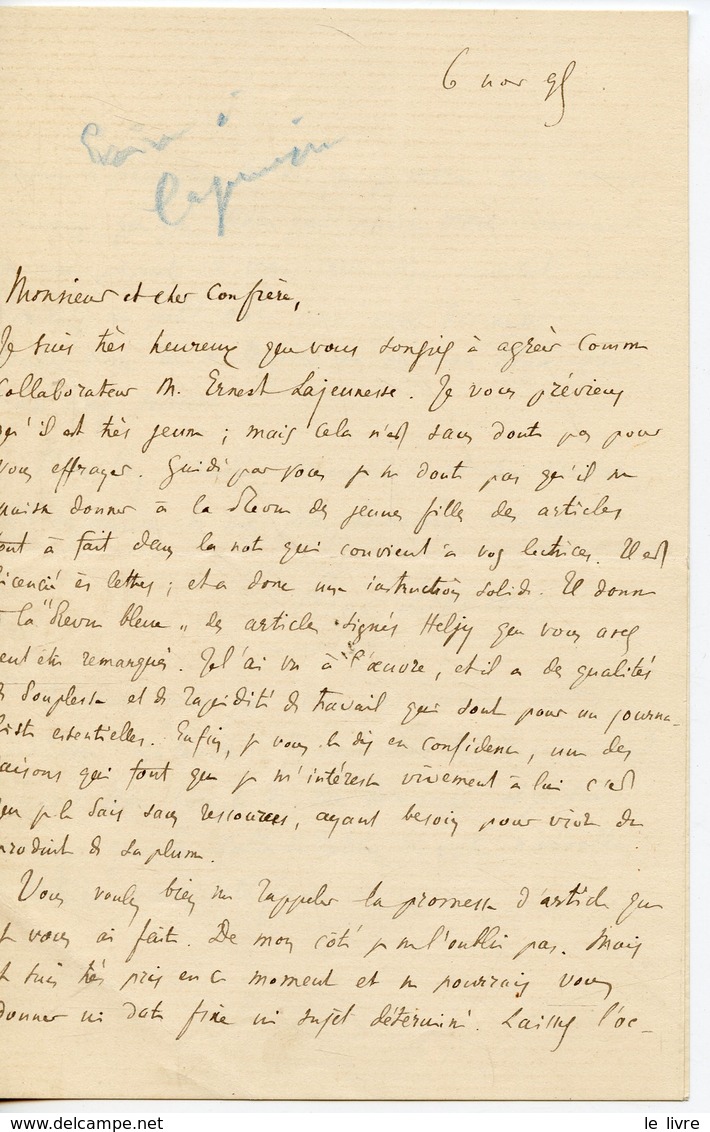 6 nov 95
Monsieur et cher Confrère,
Je suis très heureux que vous songiez à agréer comme
collaborateur M. Ernest Lajeunesse. Je vous préviens
qu'il est très jeune ; mais cela n'est sans doute pas pour
vous effrayer. Guidé par vous je ne doute pas qu'il ne
puisse donner à la Revue des jeunes filles des articles
tout à fait dans la note qui convient à vos lectrices. Il est
licencié ès lettres ; et a donc une instruction solide. Il donne
à la "Revue bleue" des articles signés Heljy que vous avez
peut être remarqués. Je l'ai vu à l'œuvre, et il a des qualités
de souplesse et de rapidité de travail qui sont pour un journa-
liste essentielles. Enfin, je vous le dis en confidence, une des
raisons qui font que je m'intéresse vivement à lui c'est
que je le sais sans ressources, ayant besoin pour vivre du
produit de sa plume.
Vous voulez bien me rappeler la promesse d'article que
je vous ai faite. De mon côté je ne l'oublie pas. Mais
je suis très pris en ce moment et ne pourrais vous
donner ni date fixe ni sujet déterminé. Laissez l'oc-
le livre